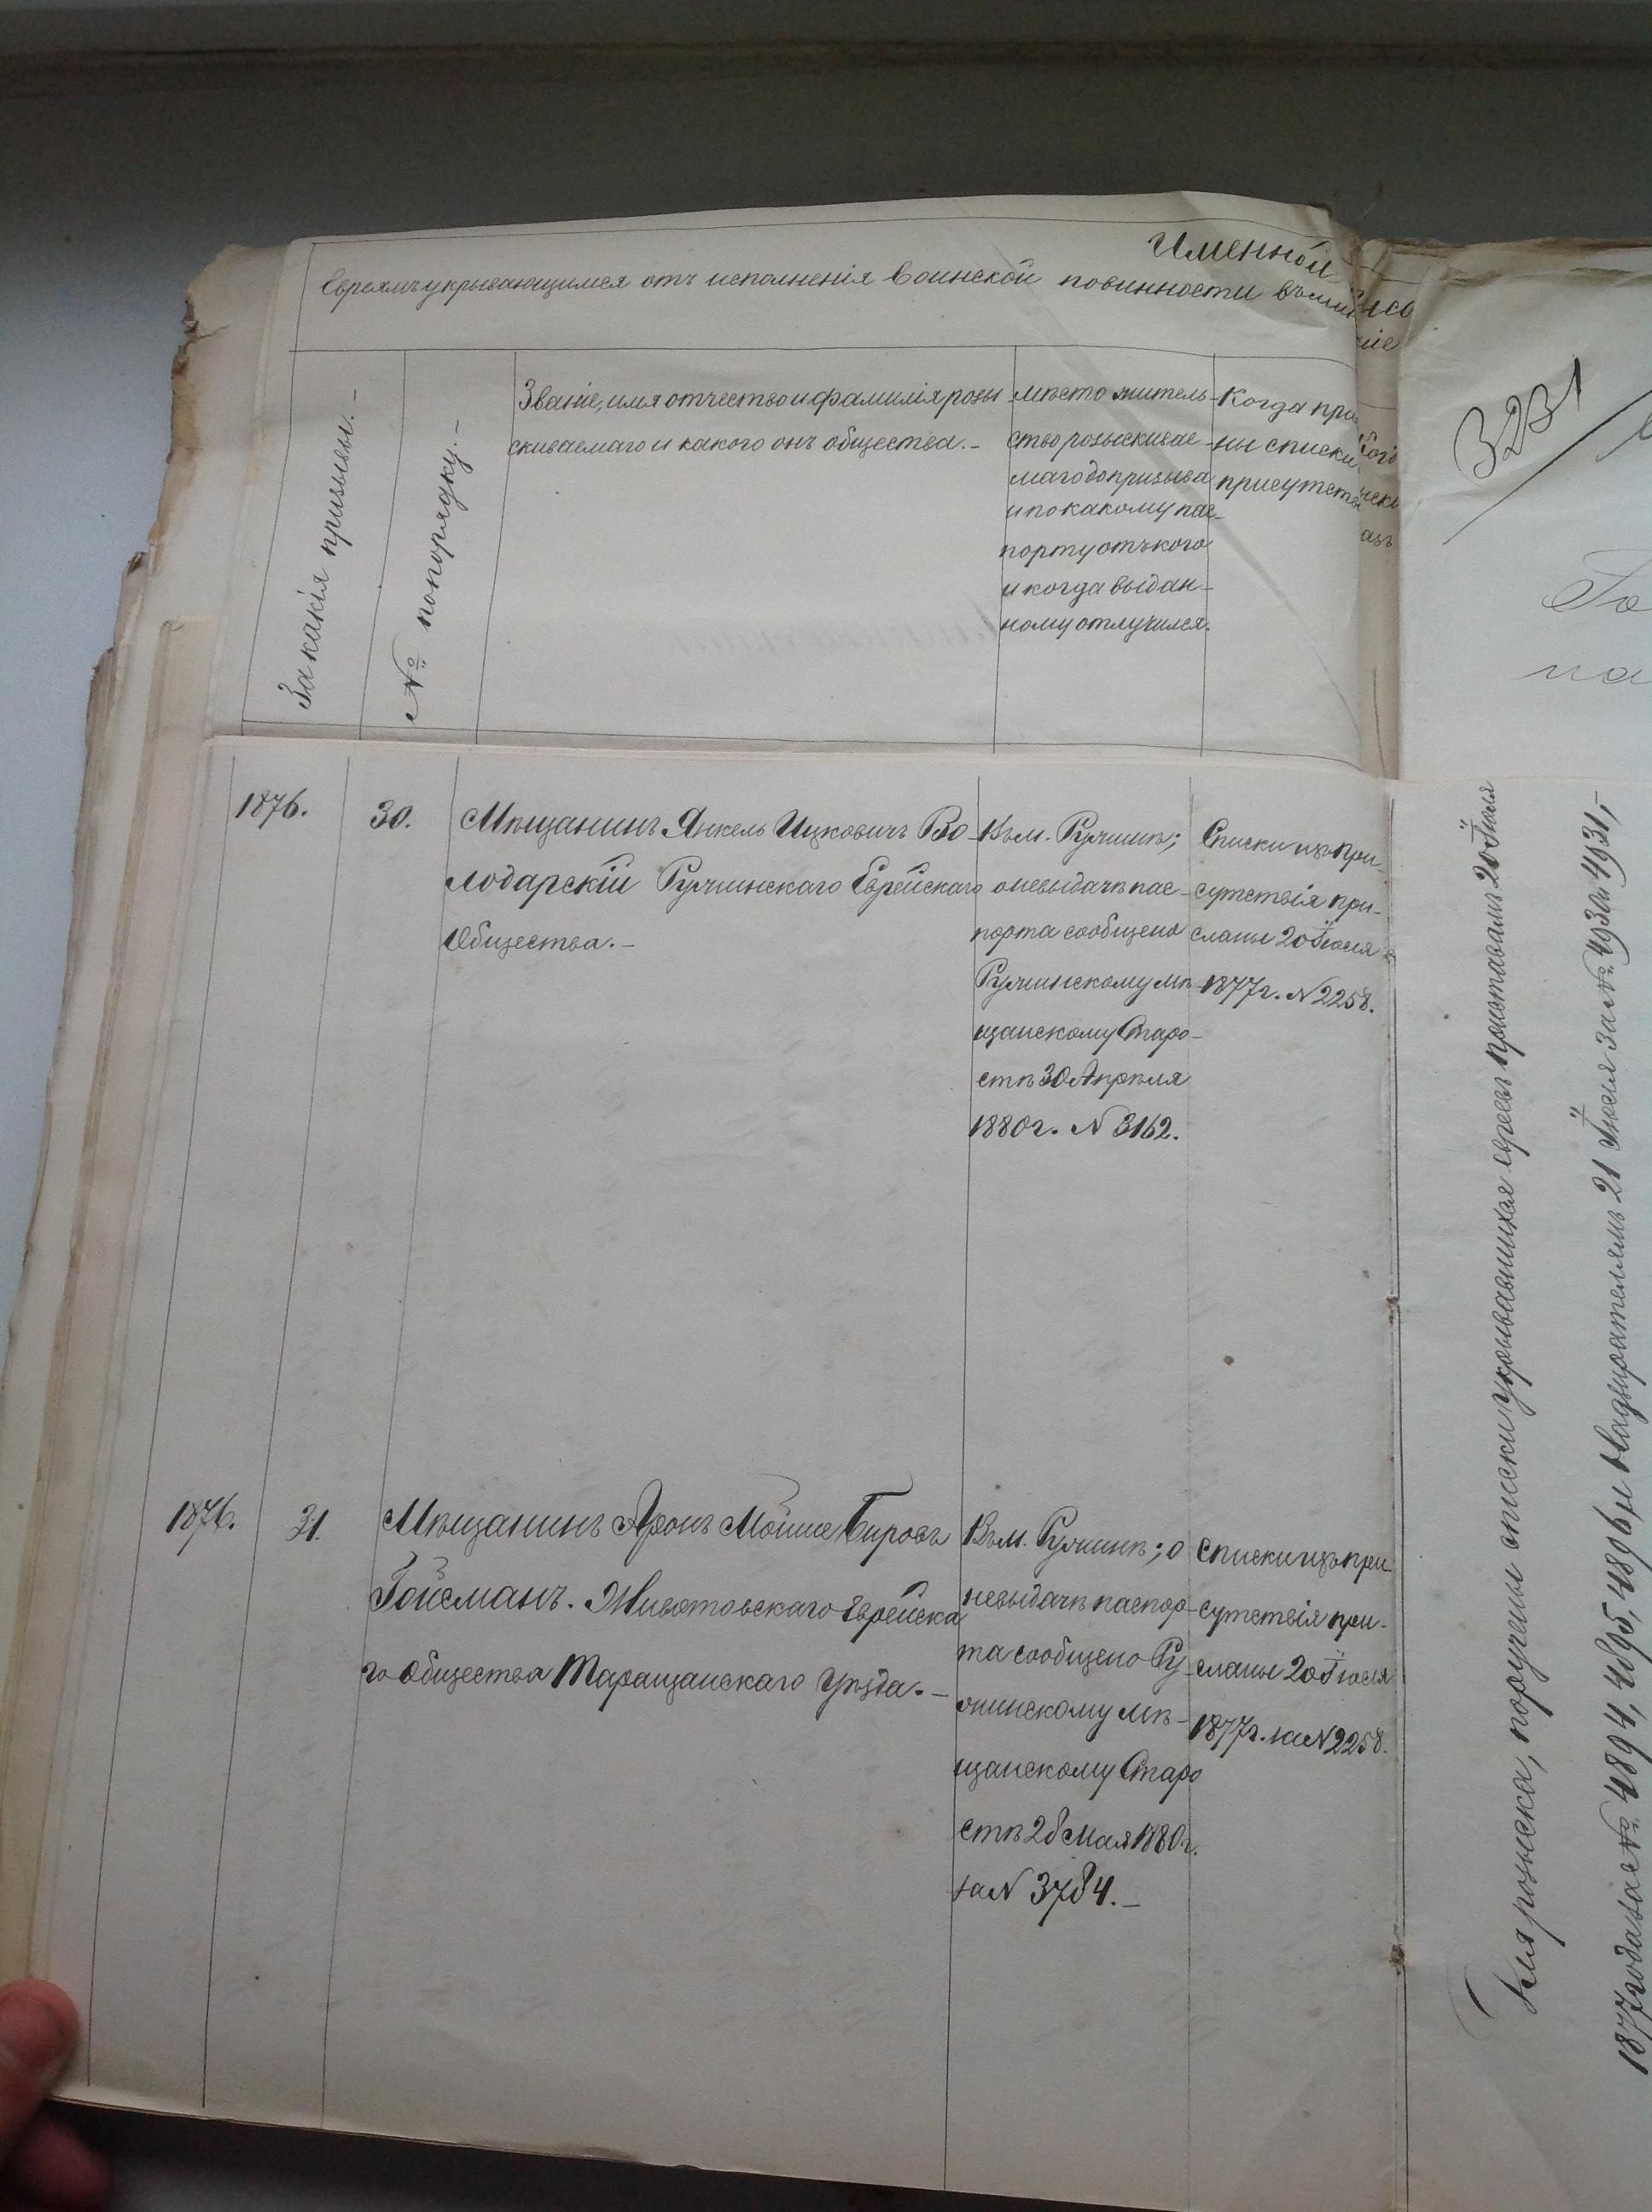 Именной
Евреямъ укрывающимся отъ исполненія воинской повинности въ
За какія призывы.-
№ попорядку.-
Званіе, имя отчество и фамилія розы
скиваемаго и какого онъ общества.-
мѣсто житель-
ство розыскивае-
маго до призыва
и по какому пас-
порту отъ кого
и когда выдан-
ному отлучился.
Когда при
ны списки
присутств
1876.
30.
Мѣщанинъ Янкель Ицковичъ Во-
лодарскій Ружинскаго Еврейскаго
Общества.-
Въ м. Ружинѣ;
о невыдачѣ пас-
порта сообщено
Ружинскому мѣ-
щанскому Старо-
стѣ 30 Апрѣля
1880 г. N 3162.
Списки изъ при-
сутствія при-
сланы 20 Іюля
1877 г. N 2258.
1876.
31.
Мѣщанинъ Аронъ Мойше Беровъ
Гойсманъ. Животовскаго Еврейска
го Общества Таращанскаго Уѣзда.-
Въ м. Ружинѣ; о
невыдачѣ паспор-
та сообщено Ру-
жинскому мѣ-
щанскому Старо
стѣ 28 Мая 1880 г.
за N 3784.-
Списки изъ при-
сутствія при-
сланы 20 Іюля
1877 г. за N 2258.
3231
Для розыска, поручены списки укрывавшихся евреевъ приставамъ 20 Іюля
1877 года за № 4894, 4895, 4896, и Надзирателямъ 21 Іюля за № 4930 и 4931,-